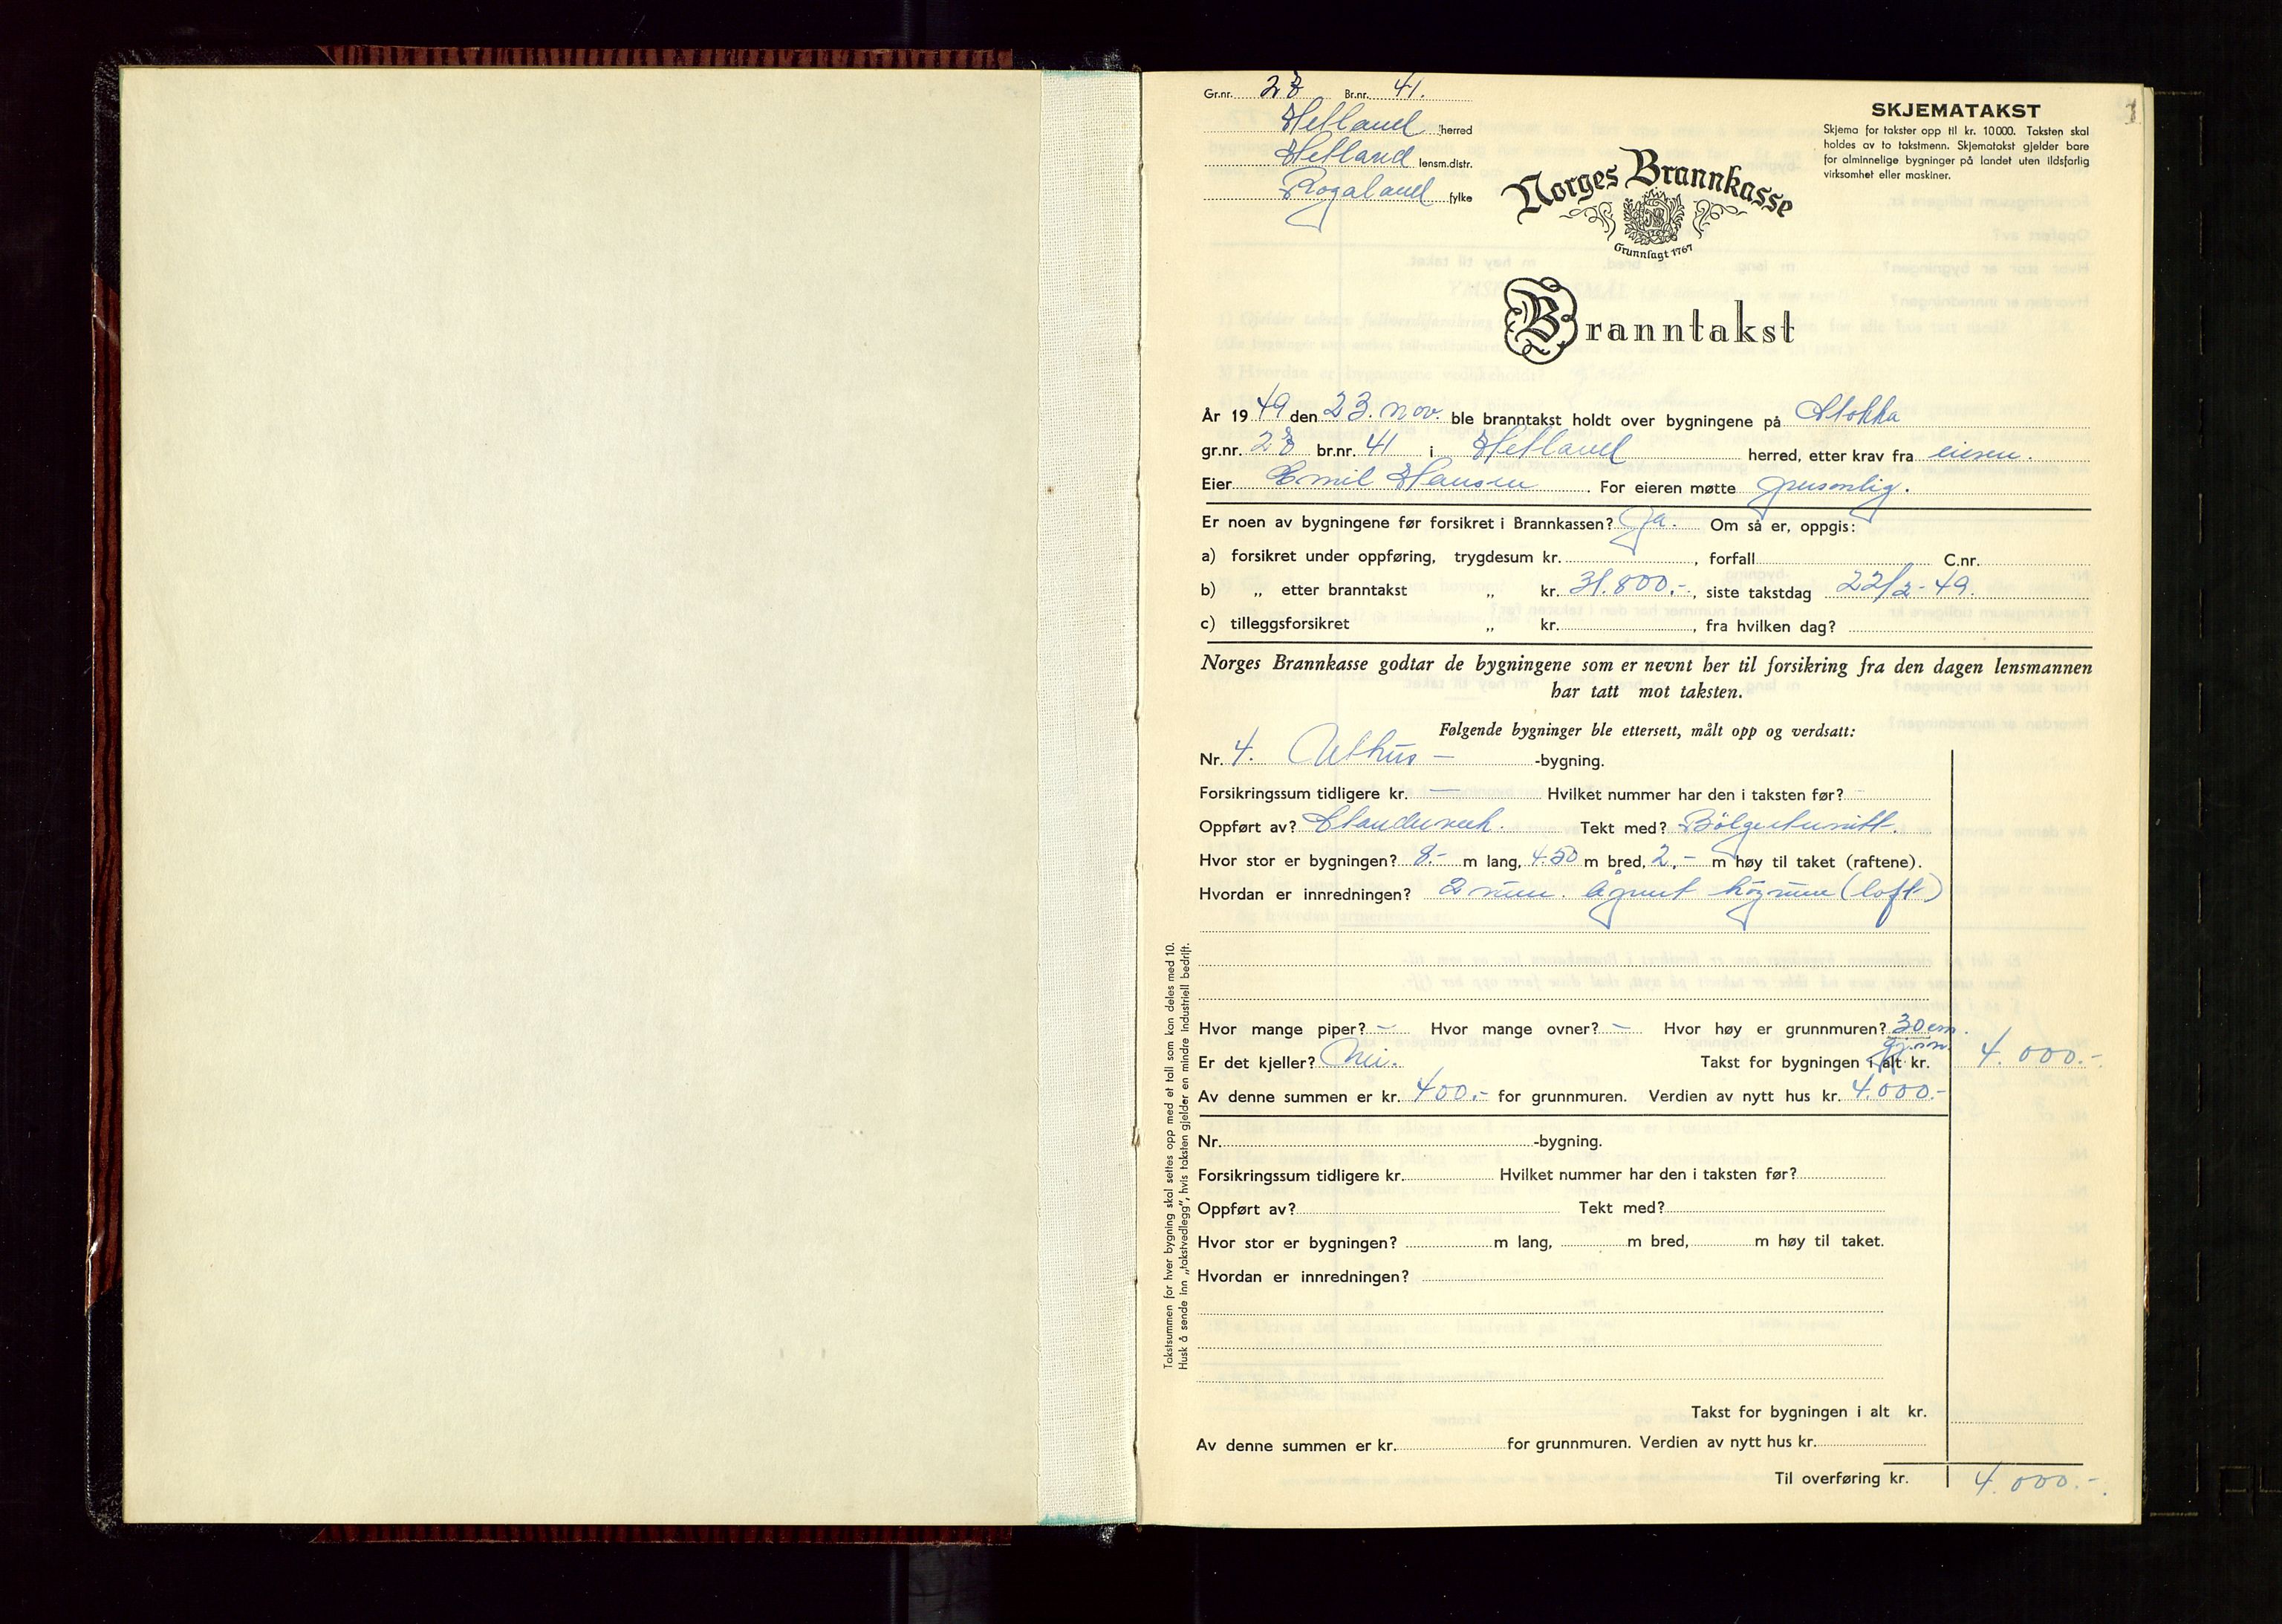 Gr.nr. 28 Br.nr. 41.
Hetland herred
Hetland lensm.distr.
Rogaland fylke
1
SKJEMATAKST
Skjema for takster opp til kr. 10000. Taksten skal
holdes av to takstmenn. Skjematakst gjelder bare
for alminnelige bygninger på landet uten ildsfarlig
virksomhet eller maskiner.
Norges Brannkasse
Grunnlagt 1767
Branntakst
År 1949 den 23. nov. ble branntakst holdt over bygningene på Stokka
gr.nr. 28 br.nr. 41 i Hetland herred, etter krav fra eieren.
Eier Emil Hansen. For eieren møtte personlig.
Er noen av bygningene før forsikret i Brannkassen? Ja. Om så er, oppgis:
a) forsikret under oppføring, trygdesum kr. , forfall C.nr.
b) „ etter branntakst „ kr. 31.800.-, siste takstdag 22/2-49.
c) tilleggsforsikret „ kr. , fra hvilken dag?
Norges Brannkasse godtar de bygningene som er nevnt her til forsikring fra den dagen lensmannen
har tatt mot taksten.
Følgende bygninger ble ettersett, målt opp og verdsatt:
Nr. 4. Uthus – -bygning.
Forsikringssum tidligere kr. — Hvilket nummer har den i taksten før? -
Oppført av? Standerverk. Tekt med? Bölgeeternitt.
Hvor stor er bygningen? 8.- m lang, 4.50 m bred, 2,- m høy til taket (raftene).
Hvordan er innredningen? 2 rum. Åpent høyrum (loft)
Hvor mange piper? – Hvor mange ovner? – Hvor høy er grunnmuren? 30 cm.
gj.sn.
Er det kjeller? Nei. Takst for bygningen i alt kr. 4.000.-
Av denne summen er kr. 400.- for grunnmuren. Verdien av nytt hus kr. 4.000.-
Nr. -bygning.
Forsikringssum tidligere kr. Hvilket nummer har den i taksten før?
Oppført av? Tekt med?
Hvor stor er bygningen? m lang, m bred, m høy til taket.
Hvordan er innredningen?
Takst for bygningen i alt kr.
Av denne summen er kr. for grunnmuren. Verdien av nytt hus kr.
Til overføring kr. 4.000.-
Takstsummen for hver bygning skal settes opp med et tall som kan deles med 10.
Husk å sende inn „takstvedlegg", hvis taksten gjelder en mindre industriell bedrift.